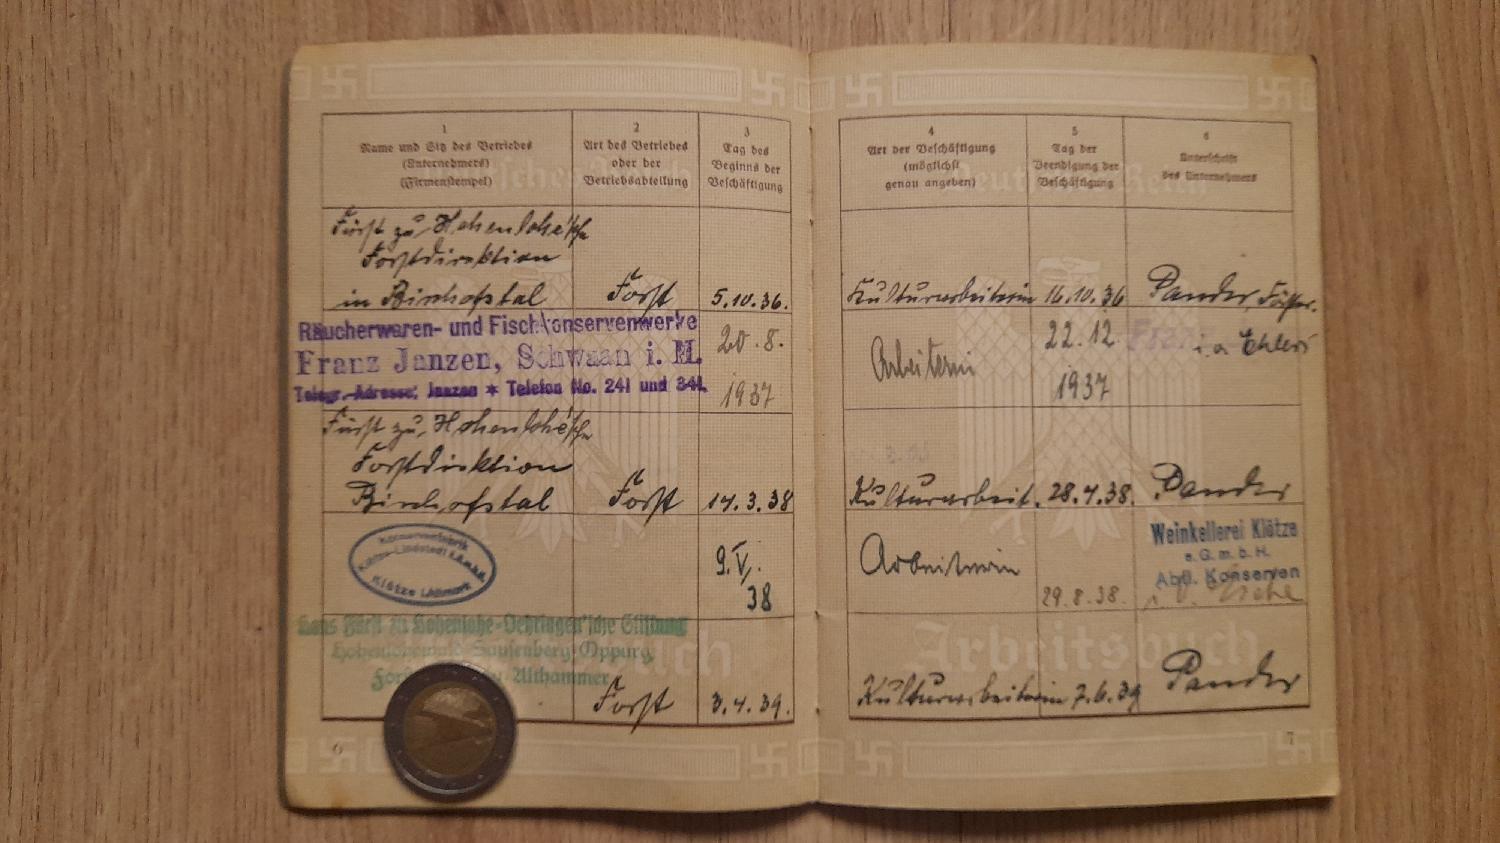 1
Name und Sitz des Betriebes
(Unternehmers)
(Firmenstempel)
2
Art des Betriebes
oder der
Betriebsabteilung
3
Tag des
Beginns der
Beschäftigung
4
Art der Beschäftigung
(möglichst
genau angeben)
5
Tag der
Beendigung der
Beschäftigung
6
Unterschrift
des Unternehmers
Fürst zu Hohenlohe'sche
Forstdirektion
in Birchofstal
Forst
5.10.36.
Kulturarbeiterin
16.10.36
Pander, Förster.
Räucherwaren- und Fischkonservenwerke
Franz Janzen, Schwaan i. M.
Telegr.-Adresse: Janzen * Telefon No. 241 und 341.
20.8.
1937
Arbeiterin
22.12.
1937
Franz
i.a Ehlers
Fürst zu Hohenlohe'sche
Forstdirektion
Birchofstal
Forst
14.3.38
Kulturarbeit.
28.4.38.
Pander
Konservenfabrik
Klötze (Altmark)
9.V.
38
Arbeiterin
29.8.38.
Weinkellerei Klötze
e. G. m. b. H.
Abt. Konserven
Hans Fürst zu Hohenlohe-Oehringen'sche Stiftung
Hohenlohewald Sausenberg, Oppurg,
Althammer
Forst
3.4.39.
Kulturarbeiterin
7.6.39
Pander
Deutsches Reich
Arbeitsbuch
6
7